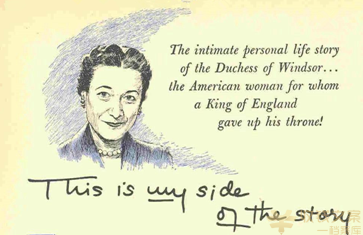 The intimate personal life story
of the Duchess of Windsor...
the American woman for whom
a King of England
gave up his throne!
This is my side
of the story